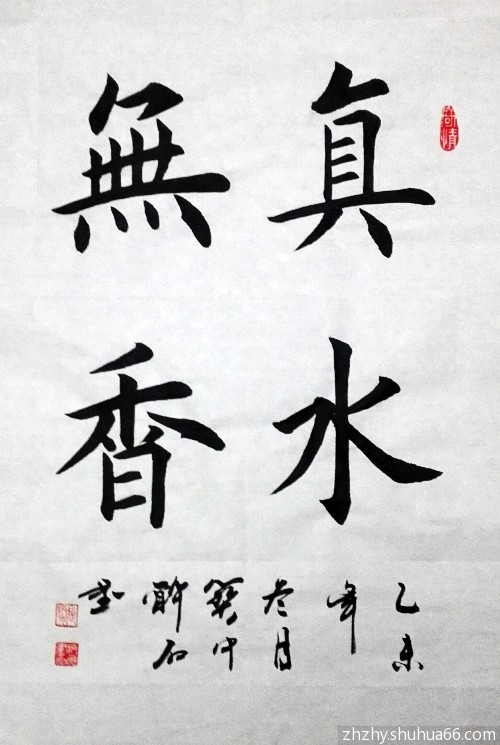 真水
無香
乙未
年
月
中
石
書
zhzhy.shuhua66.com